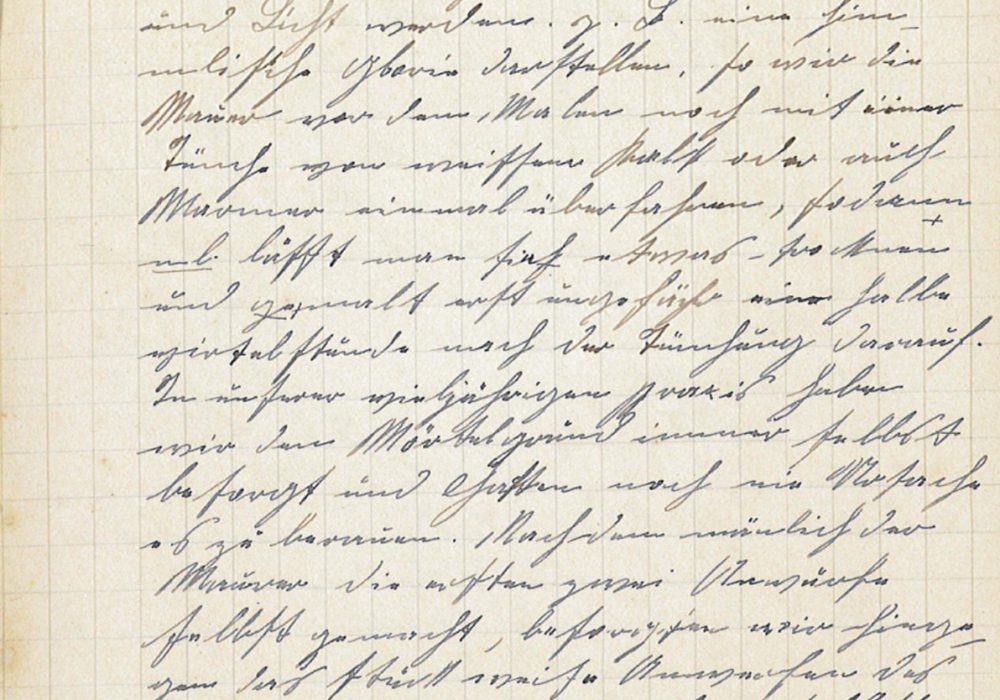 und Licht werden. z. B. eine him-
mlische Glorie darstellen, so wir die
Mauer vor dem Malen noch mit einer
Tünche von weissem Kalk oder auch
Marmor einmal überfahren, sodann
n.b. läßt man sich etwas trocknen
und gemalt erst ungefähr eine halbe
virtelstunde nach der Tünchung darauf.
In unserer vieljährigen praxis haben
wir den Mörtelgrund immer selbst
besorgt und hatten noch nie Ursache
es zu berauen. Nachdem nämlich der
Maurer die ersten zwei Anwürfe
selbst gemacht, besorgten wir hinge-
gen das stückweise Anwerfen des